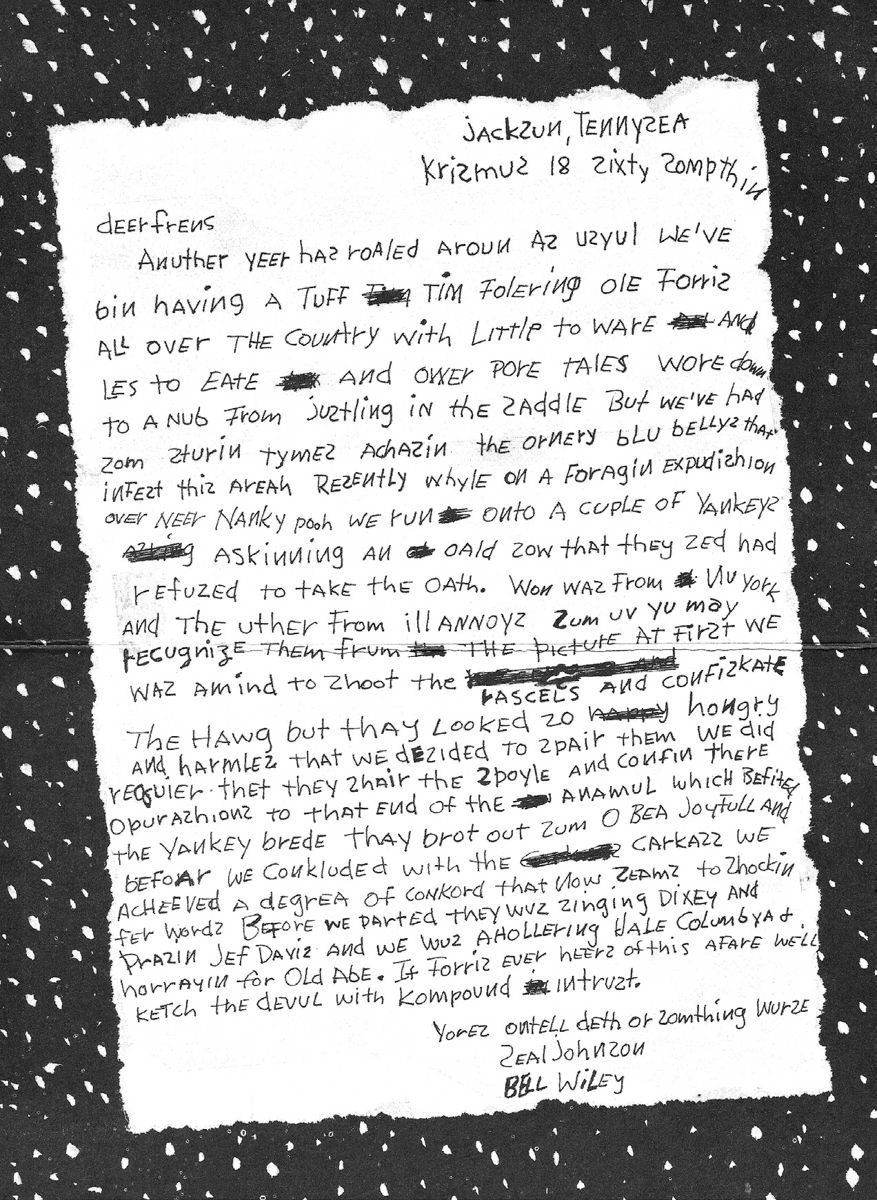 jACkzUN, TENNYZEA
Krizmuz 18 zixty zompthin
dEErfrENS
ANuthEr yEEr haz roAlEd AroUN Az uzyul WE'VE
biN hAving A TUFF TIM FolEriNg OlE Forriz
ALL OVEr THE CouNtry With LittlE to WArE AND
LES to EATE AND OWEr PorE TALES WorE down
to A NUB From juztling iN thE zADDlE But WE'VE hAD
zom zturiN tymEz AchAziN thE orNEry bLU bEllyz that
iNFEzt thiz ArEAh REzENtly WhylE oN A ForAgiN EXpudizhioN
OVEr NEEr NANky pooh WE ruN ONtO A CUPLE OF YANkEyz
ASkiNNiNg AN OAld zow thAt thEy zED hAD
rEFuzED to tAkE thE OAth. WoN WAz From NU york
AND THE UthEr From illANNOyz zum uv yu may
rECUgNizE THEm Frum THE picturE AT FirzT WE
WAz AmiND to zhoot thE rASCElS AND CoNFizkATE
THE HAWg but thAy LookED zo hoNgry
AND hArmlEz thAt WE dEzidEd to zpAir thEm WE did
rEquiEr thEt thEy zhAir thE zpoylE AND CoNFiN thErE
OpurAzhioNz to thAt END of thE ANAmul which BEFitEd
thE YANkEy brEdE thAy brot out zum O BEA JoyfULL AND
bEFoAr WE CoNkluDED with thE CArkAzz WE
AChEEvED A DEgrEA of CoNkorD thAt Now zEAmz to zhockiN
fEr worDz BEForE WE pArtED thEy wuz ziNgiNg DIXEy AND
PrAziN JEf DAviz AND WE wuz AhollEriNg HAlE ColumbyA &
horrAyiN for Old AbE. If Forriz EvEr hEErz of this AFArE WEll
kETch thE dEvul with kompouND iNtruzt.
YorEz oNtEll dEth or zomthiNg WurzE
zEAl JohNzoN
BEll WilEy